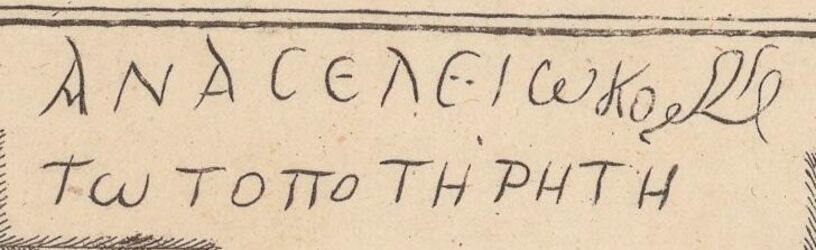 ΑΝΑϹΕΛΕΙωΚΟ
ΤωΤΟΠΟΤΗΡΗΤΗ